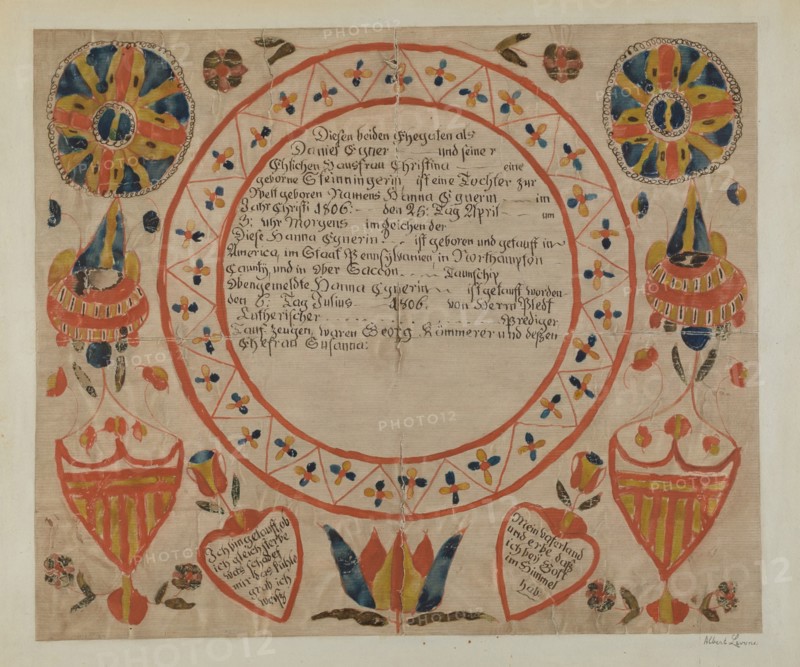 Diesen beiden Ehegaten als
Daniel Egner und seiner
Ehlichen Hausfrau Christina eine
geborne Steinningerin ist eine Tochter zur
Welt geboren Namens Hanna Egnerin im
Jahr Christi 1806. den 25. Tag April um
3. uhr Morgens im Zeichen der
Diese Hanna Egnerin ist geboren und getauft in
America, im Staat Pennsylvanien in Northampton
County, und in Ober Saccon Taunschip
Obengemeldte Hanna Egnerin ist getauft worden
den 6. Tag Julius 1806. von Herrn
Lutherischer Prediger
Tauf Zeugen, waren Georg Kümmerer und deßen
Ehefrau Susanna:
Ich bin getauft, ob
ich gleich sterbe
was schadet
mir das kühle
grab ich
weiß
Mein Vaterland
und erbe, daß
ich bey Gott
im Himmel
hab
Albert Levone
PHOTO12